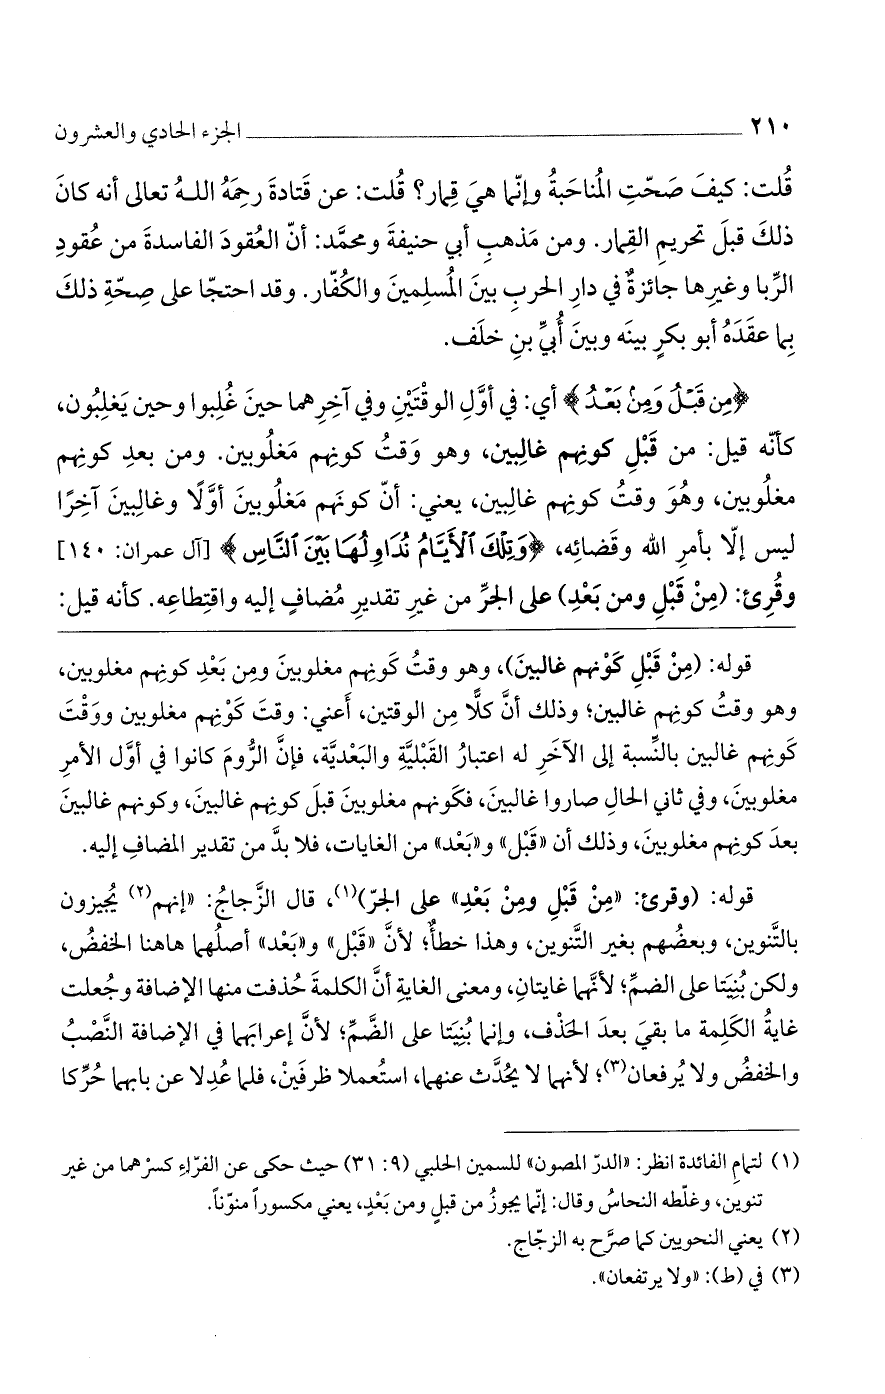 ٢١٠ الجزء الحادي والعشرون
قُلت: كيفَ صَحّتِ المُناحَبةُ وإنّما هيَ قِمار؟ قُلت: عن قَتادةَ رحِمَهُ اللـهُ تعالى أنه كانَ
ذلكَ قبلَ تحريمِ القِمار. ومن مَذهبِ أبي حنيفةَ ومحمَّد: أنّ العُقودَ الفاسدةَ من عُقودِ
الرِّبا وغيرِها جائزةٌ في دارِ الحربِ بينَ المُسلِمينَ والكُفّار. وقد احتجّا على صِحّةِ ذلكَ
بِما عقَدَهُ أبو بكرٍ بينَه وبينَ أُبيِّ بنِ خلَف.
﴿مِن قَبْلُ وَمِنۢ بَعْدُ﴾ أي: في أوَّلِ الوقْتَيْنِ وفي آخِرِهما حينَ غُلِبوا وحين يَغلِبُون،
كأنّه قيل: من قَبْلِ كونِهم غالِبين، وهو وَقتُ كونِهم مَغلُوبين. ومن بعدِ كونِهم
مغلُوبين، وهُوَ وقتُ كونِهم غالِبين، يعني: أنّ كونَهم مَغلُوبينَ أوَّلًا وغالِبينَ آخِرًا
ليس إلّا بأمرِ الله وقَضائِه، ﴿وَتِلْكَ ٱلْأَيَّامُ نُدَاوِلُهَا بَيْنَ ٱلنَّاسِ﴾ [آل عمران: ١٤٠]
وقُرِئ: (مِنْ قَبْلِ ومن بَعْدِ) على الجرِّ من غيرِ تقديرِ مُضافٍ إليه واقتِطاعِه. كأنه قيل:
قوله: (مِنْ قَبْلِ كَوْنهم غالبينَ)، وهو وقتُ كَونِهم مغلوبينَ ومِن بَعْدِ كونِهم مغلوبين،
وهو وقتُ كونِهم غالبين؛ وذلك أنَّ كلًّا مِن الوقتين، أَعني: وقتَ كَوْنِهم مغلوبين ووَقْتَ
كَونِهم غالبين بالنِّسبة إلى الآخَرِ له اعتبارُ القَبْليَّةِ والبَعْديَّة، فإنَّ الرُّومَ كانوا في أوَّل الأمرِ
مغلوبينَ، وفي ثاني الحالِ صاروا غالبينَ، فكَونُهم مغلوبينَ قبلَ كونِهم غالبينَ، وكونهم غالبينَ
بعدَ كونِهم مغلوبينَ، وذلك أن «قَبْل» و«بَعْد» من الغايات، فلا بدَّ من تقدير المضافِ إليه.
قوله: (وقرئ: «مِنْ قَبْلِ ومِنْ بَعْدِ» على الجَرّ)(١)، قال الزَّجاجُ: «إنهم(٢) يُجيزون
بالتَّنوين، وبعضُهم بغير التَّنوين، وهذا خطأٌ؛ لأنَّ «قَبْل» و«بَعْد» أصلُهما هاهنا الخفضُ،
ولكن بُنِيَتا على الضمِّ؛ لأنَّهما غايتانِ، ومعنى الغايةِ أنَّ الكلمةَ حُذفت منها الإضافة وجُعلت
غايةُ الكَلِمة ما بقيَ بعدَ الحَذْف، وإنما بُنِيَتا على الضَّمِّ؛ لأنَّ إعرابَهما في الإضافة النَّصْبُ
والخفضُ ولا يُرفعان(٣)؛ لأنهما لا يُحدَّث عنهما، استُعملا ظرفَيْن، فلما عُدِلا عن بابهما حُرِّكا
(١) لتمامِ الفائدة انظر: «الدرّ المصون» للسمين الحلبي (٩: ٣١) حيث حكى عن الفرّاءِ كسرْهما من غير
تنوين، وغلّطه النحاسُ وقال: إنّما يجوزُ من قبلٍ ومن بَعْدٍ، يعني مكسوراً منوّناً.
(٢) يعني النحويين كما صرَّح به الزجّاج.
(٣) في (ط): «ولا يرتفعان».